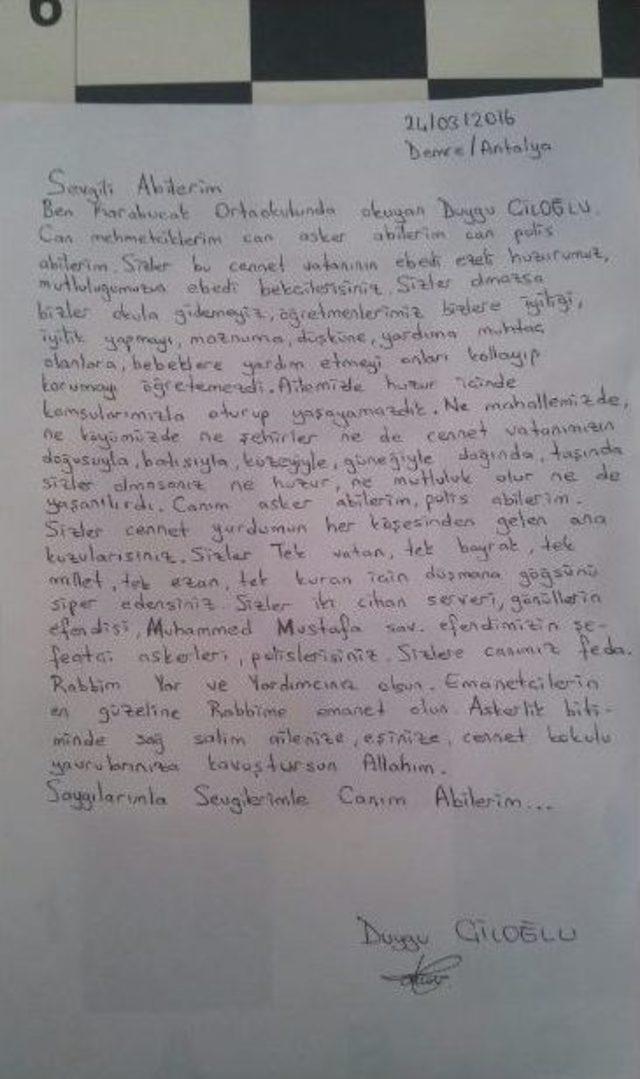 6
24/03/2016
Demre/Antalya
Sevgili Abilerim
Ben Karabucak Ortaokulunda okuyan Duygu CİLOĞLU.
Can mehmetciklerim can asker abilerim can polis
abilerim. Sizler bu cennet vatanının ebedi ezeli huzurumuz,
mutluluğumuzun ebedi bekcilerisiniz. Sizler olmazsa
bizler okula gidemeyiz, öğretmenlerimiz bizlere iyiliği,
iyilik yapmayı, maznuma, düşküne, yardıma muhtac
olanlara, bebeklere yardım etmeyi onları kollayıp
korumayı öğretemezdi. Ailemizle huzur icinde
komşularımızla oturup yaşayamazdık. Ne mahallemizde,
ne köyümüzde ne şehirler ne de cennet vatanımızın
doğusuyla, batısıyla, kuzeyiyle, güneğiyle dağında, taşında
sizler olmasanız ne huzur, ne mutluluk olur ne de
yaşanılırdı. Canım asker abilerim, polis abilerim.
Sizler cennet yurdumun her köşesinden gelen ana
kuzularısınız. Sizler Tek vatan, tek bayrak, tek
millet, tek ezan, tek kuran icin düşmana göğsünü
siper edensiniz. Sizler iki cihan serveri, gönüllerin
efendisi, Muhammed Mustafa sav. efendimizin şe-
featçi askerleri, polislerisiniz. Sizlere canımız feda.
Rabbim Yar ve Yardımcınız olsun. Emanetcilerin
en güzeline Rabbime emanet olun. Askerlik biti-
minde sağ salim ailenize, eşinize, cennet kokulu
yavrularınıza kavuştursun Allahım.
Saygılarımla Sevgilerimle Canım Abilerim...
Duygu CİLOĞLU